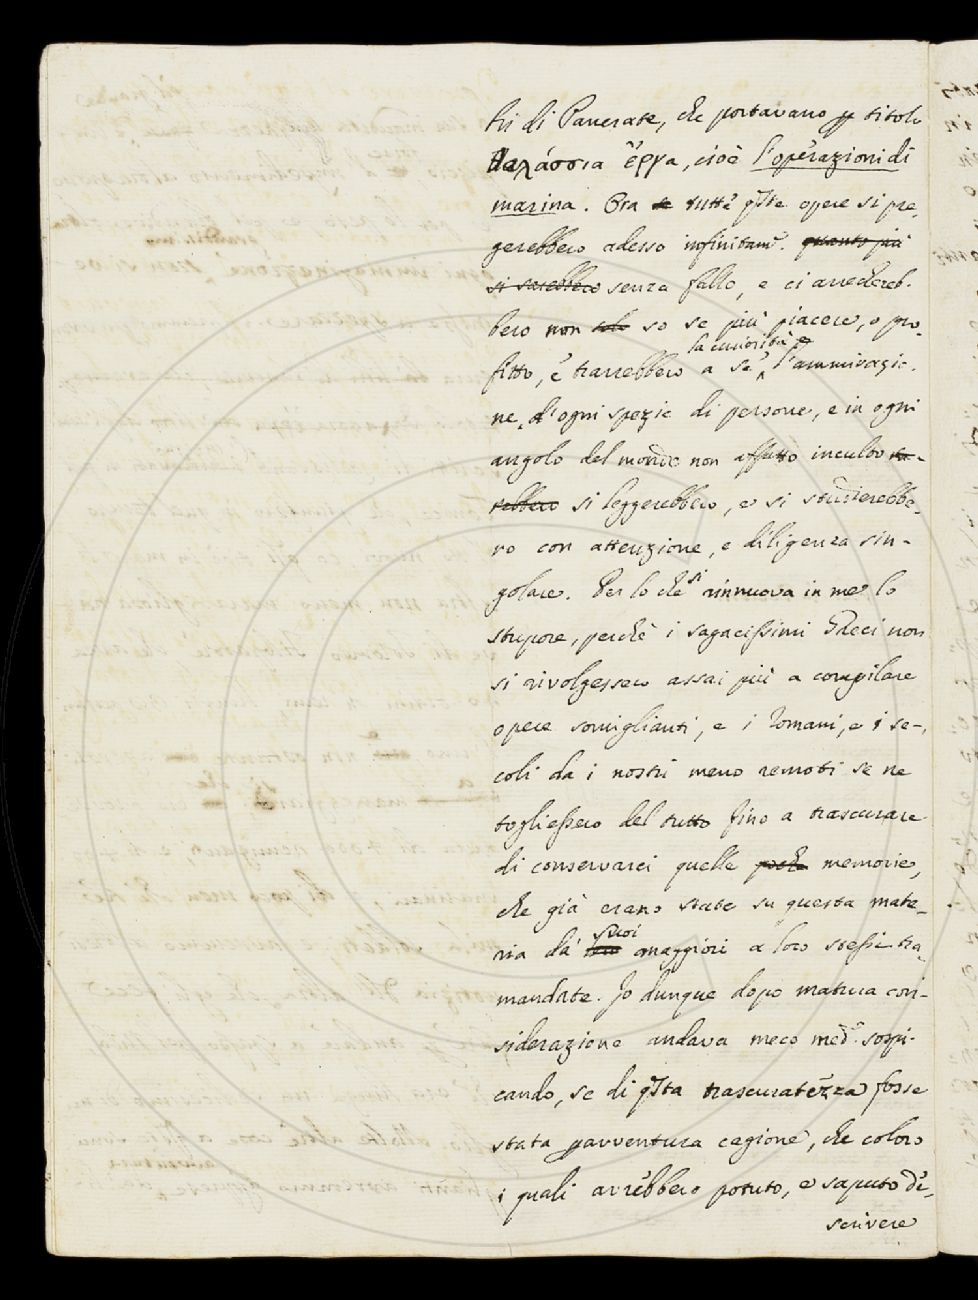 tri di Pancrate, che portavano p titolo
θαλάσσια ἔργα, cioè l'operazioni di
marina. Ora se tutte q̃ste opere si pre-
gerebbero adesso infinitam.e quanto più
si sarebbero senza fallo, e ci arrechereb-
bero non solo so se più piacere, o pro-
fitto, e trarrebbero a se la curiosità, e l'ammirazio-
ne d'ogni spezie di persone, e in ogni
angolo del mondo non affatto inculto sa-
rebbero si leggerebbero, e si studierebbe-
ro con attenzione, e diligenza sin-
golare. Per lo che si rinnuova in me lo
stupore, perchè i sagacissimi Greci non
si rivolgessero assai più a compilare
opere somiglianti, e i Romani, e i se-
coli da i nostri meno remoti se ne
togliessero del tutto fino a trascurare
di conservarci quelle poche memorie,
che già erano state su questa mate-
ria da' suoi maggiori a loro stessi tra-
mandate. Io dunque dopo matura con-
siderazione andava meco med.o sospi-
cando, se di q̃sta trascuratezza fosse
stata pavventura cagione, che coloro
i quali avrebbero potuto, e saputo de-
scrivere